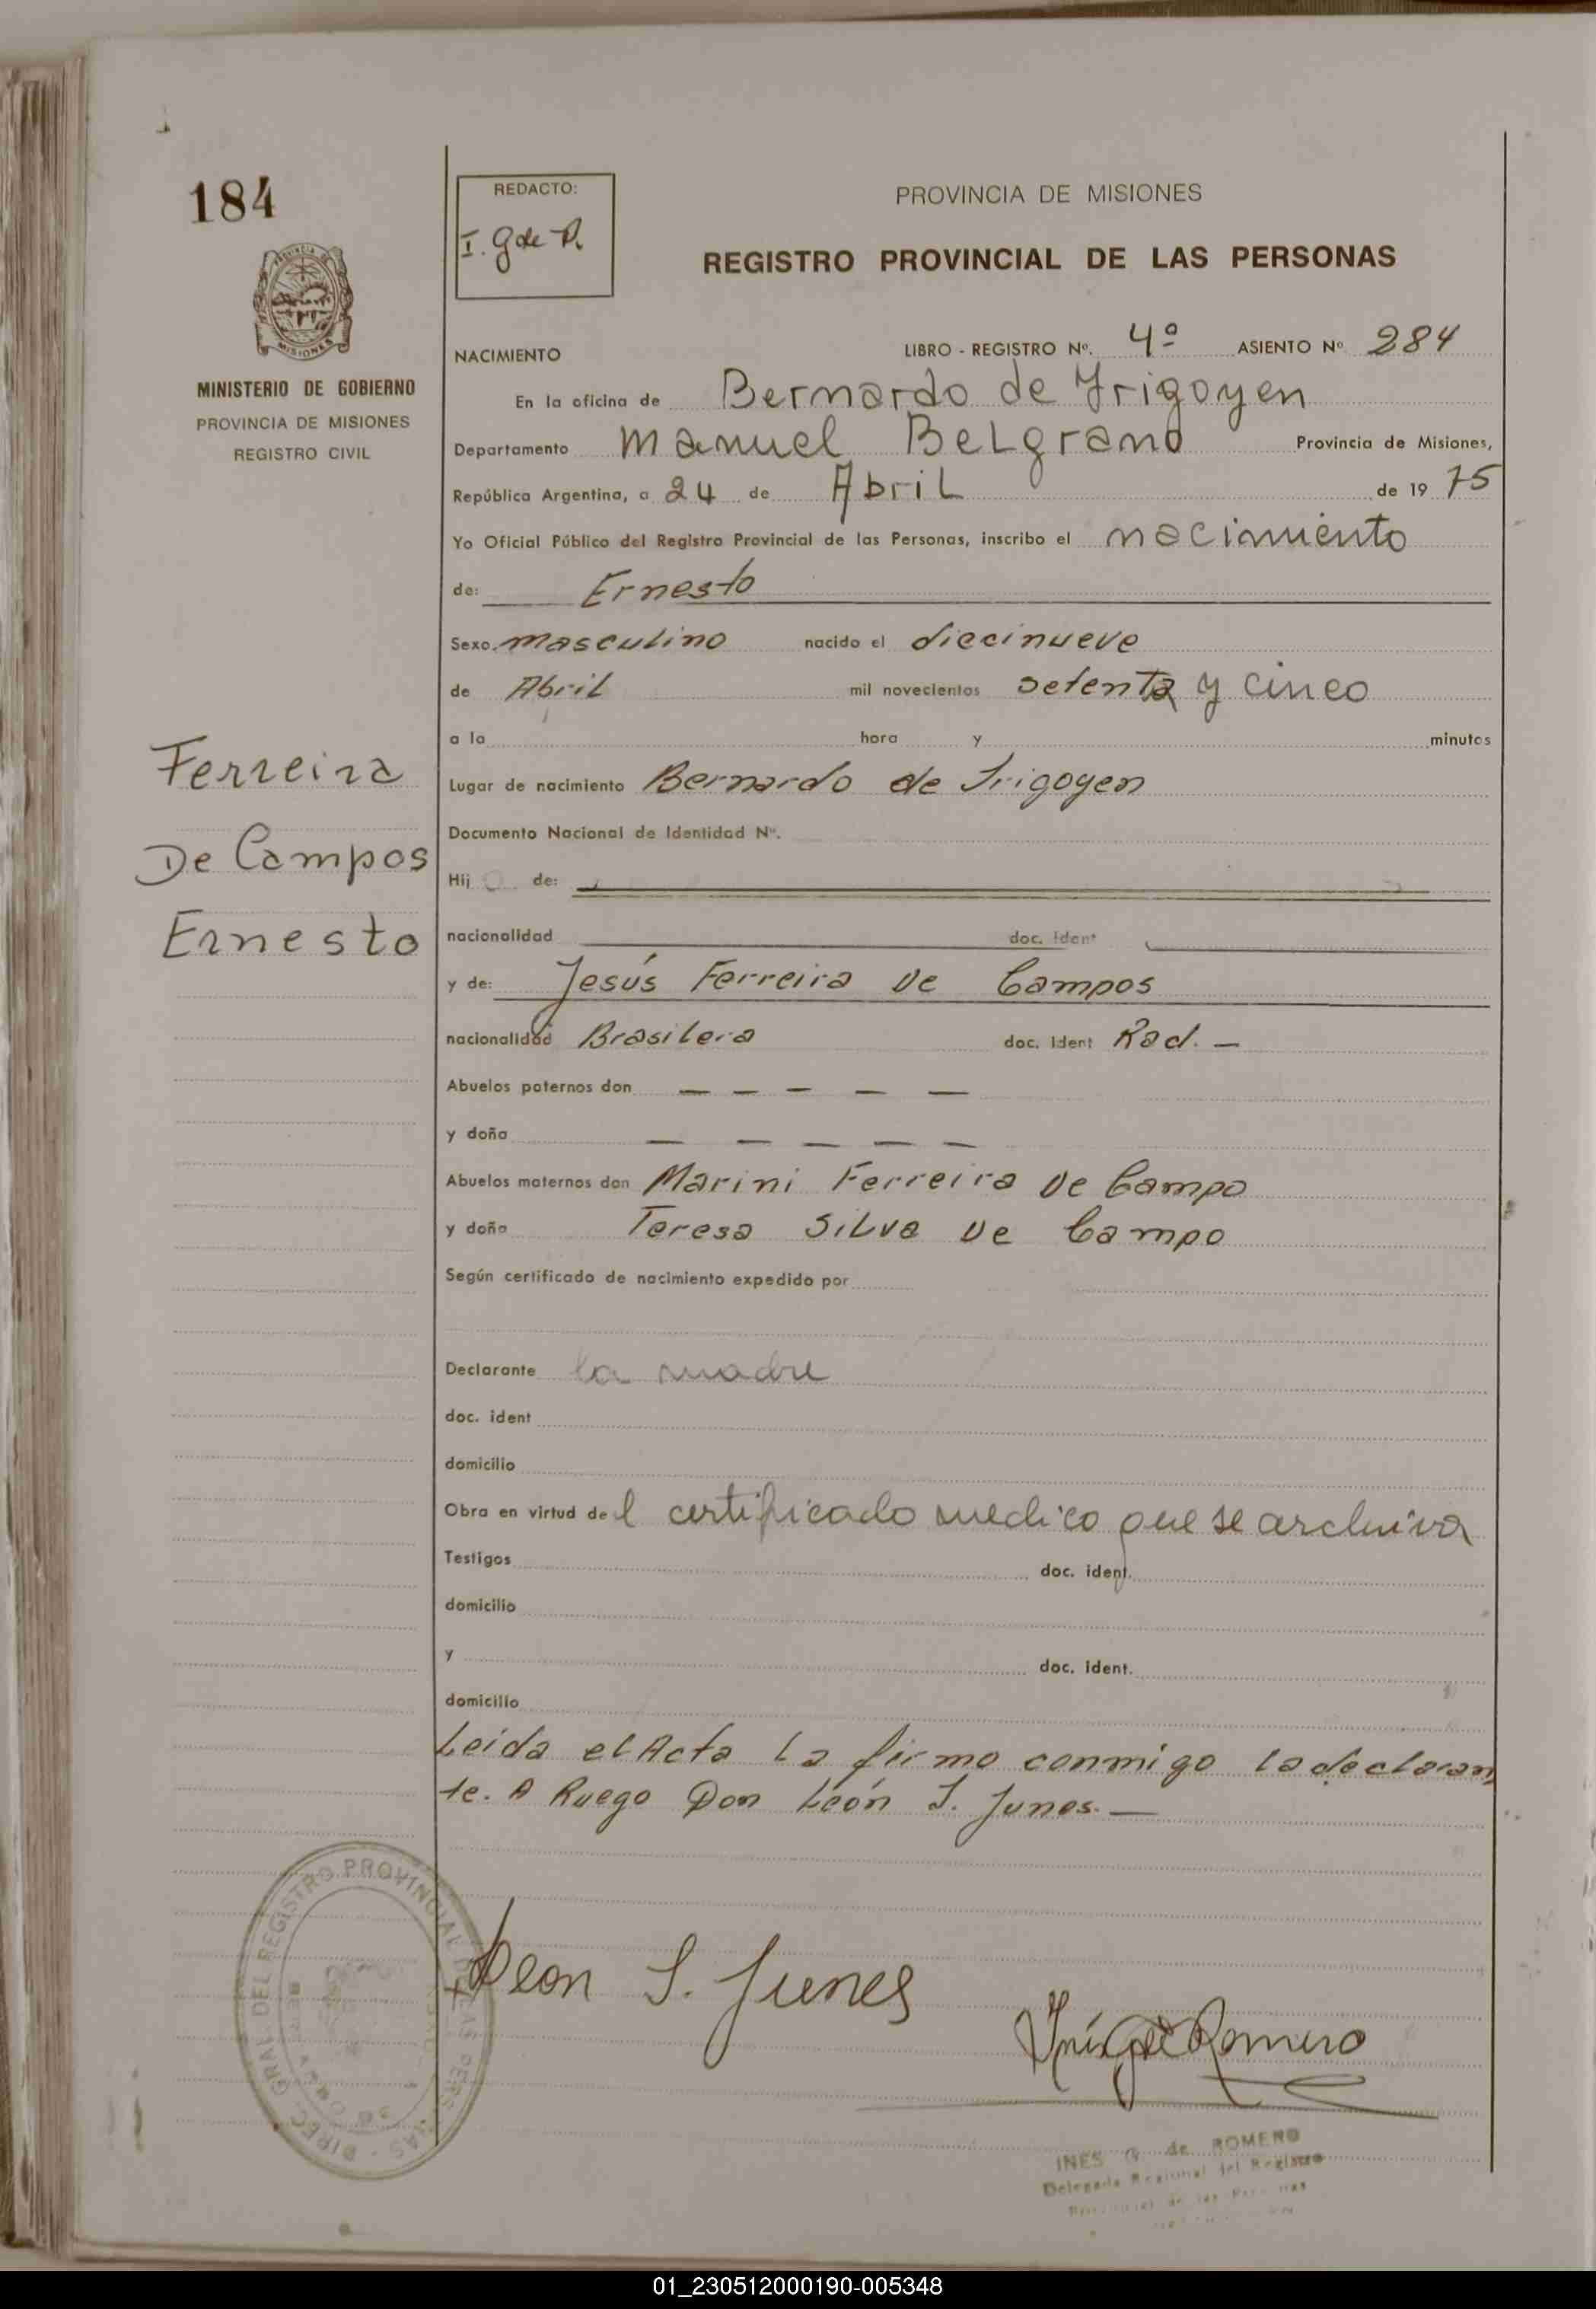 184
REDACTO:
I. G de R.
PROVINCIA DE MISIONES
REGISTRO PROVINCIAL DE LAS PERSONAS
PROVINCIA DE
MISIONES
MINISTERIO DE GOBIERNO
PROVINCIA DE MISIONES
REGISTRO CIVIL
NACIMIENTO
LIBRO - REGISTRO Nº. 4º ASIENTO Nº 284
En la oficina de Bernardo de Yrigoyen
Departamento Manuel Belgrano Provincia de Misiones,
República Argentina, a 24 de Abril de 19 75
Yo Oficial Público del Registro Provincial de las Personas, inscribo el nacimiento
de: Ernesto
Sexo. masculino nacido el diecinueve
de Abril mil novecientos setenta y cinco
a la hora y minutos
Ferreira
De Campos
Ernesto
Lugar de nacimiento Bernardo de Irigoyen
Documento Nacional de Identidad Nº.
Hij o de:
nacionalidad doc. Ident
y de: Jesús Ferreira De Campos
nacionalidad Brasilera doc. Ident Rad. —
Abuelos paternos don — — — — —
y doña — — — — —
Abuelos maternos don Marini Ferreira De Campo
y doña Teresa Silva De Campo
Según certificado de nacimiento expedido por
Declarante la madre
doc. ident
domicilio
Obra en virtud del certificado medico que se archiva
Testigos doc. ident.
domicilio
y doc. ident.
domicilio
Leida el Acta la firmo conmigo la declaran
te. A Ruego Don León S. Junes. —
Leon S. Junes
Inés G de Romero
DIREC. GRAL DEL REGISTRO PROVINCIAL DE LAS PERSONAS
INES G. de ROMERO
Delegada Regional del Registro
Provincial de las Personas
01_230512000190-005348